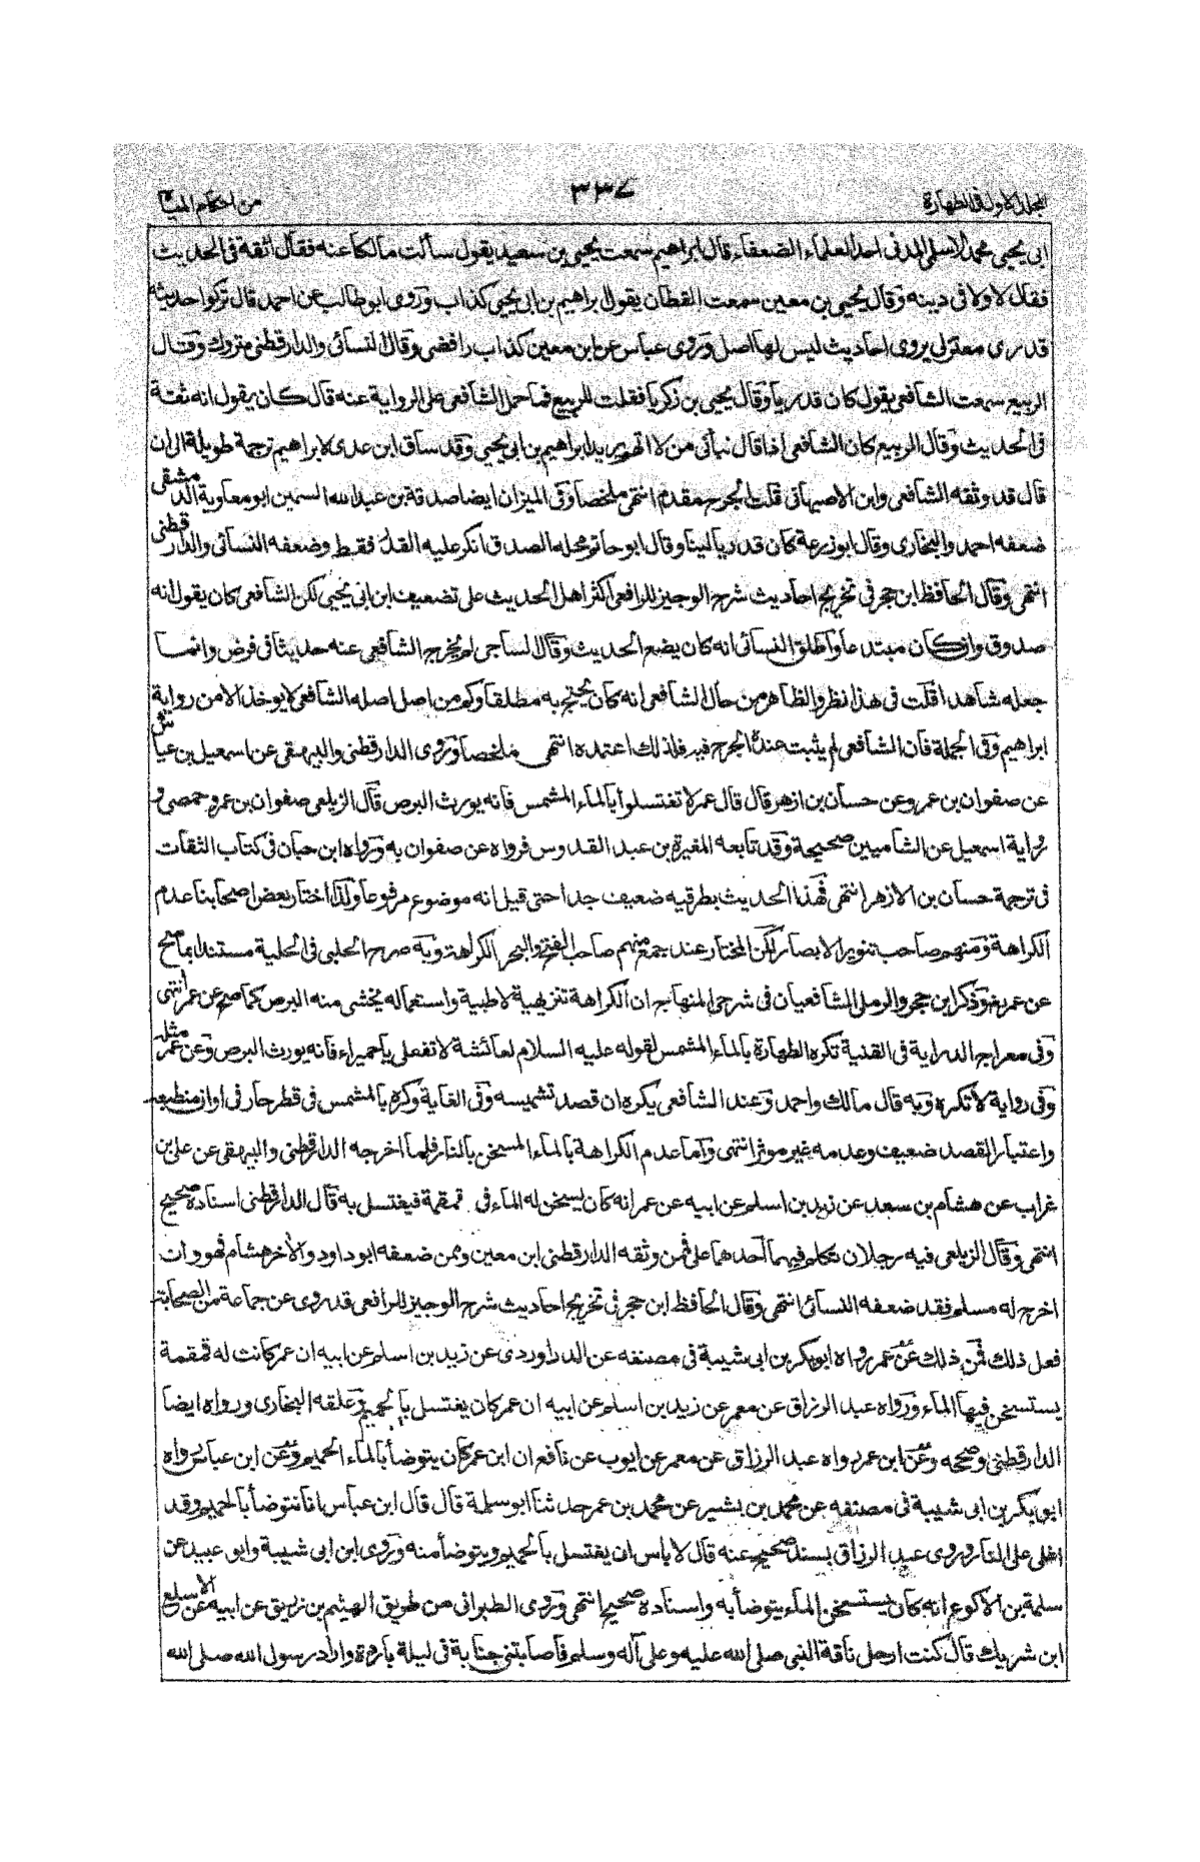 المجلد الاول فى الطهارة ٣٣٧ من احكام المياه
ابى يحيى محمد الاسلمى المدنى احد العلماء الضعفاء قال ابراهيم سمعت يحيى بن سعيد يقول سألت مالكا عنه فقال اثقه فى الحديث
فقال لا ولا فى دينه وقال يحيى بن معين سمعت القطان يقول ابراهيم بن ابى يحيى كذاب وروى ابو طالب عن احمد قال تركوا حديثه
قدرى معتزلى يروى احاديث ليس لها اصل وروى عباس عن ابن معين كذاب رافضى وقال النسائى والدارقطنى متروك وقال
الربيع سمعت الشافعى يقول كان قدريا وقال يحيى بن زكريا فقلت للربيع فما حمل الشافعى على الرواية عنه قال كان يقول انه ثقة
فى الحديث وقال الربيع كان الشافعى اذا قال نبأنى من لا اتهم يريد ابراهيم بن ابى يحيى وقد ساق ابن عدى لابراهيم ترجمة طويلة الى ان
قال قد وثقه الشافعى وابن الاصبهانى قلت الجرح مقدم انتهى ملخصا وفى الميزان ايضا صدقة بن عبد الله السمين ابو معاوية الدمشقى
ضعفه احمد والبخارى وقال ابو زرعة كان قدريا لينا وقال ابو حاتم محله الصدق انكر عليه القدر فقط وضعفه النسائى والدارقطنى
انتهى وقال الحافظ ابن حجر فى تخريج احاديث شرح الوجيز للرافعى اكثر اهل الحديث على تضعيف ابن ابى يحيى لكن الشافعى كان يقول انه
صدوق وان كان مبتدعا واطلق النسائى انه كان يضع الحديث وقال الساجى لم يخرج الشافعى عنه حديثا فى فرض وانما
جعله شاهدا قلت فى هذا نظر والظاهر من حال الشافعى انه كان يحتج به مطلقا وكم من اصل اصله الشافعى لا يوخذ الا من رواية
ابراهيم وفى الجملة فان الشافعى لم يثبت عنده الجرح فيه فلذلك اعتمده انتهى ملخصا وروى الدارقطنى والبيهقى عن اسمعيل بن عياش
عن صفوان بن عمرو عن حسان بن ازهر قال قال عمر لا تغتسلوا بالماء المشمس فانه يورث البرص قال الزيلعى صفوان بن عمرو حمصى و
رواية اسمعيل عن الشاميين صحيحة وقد تابعه المغيرة بن عبد القدوس فرواه عن صفوان به ورواه ابن حبان فى كتاب الثقات
فى ترجمة حسان بن الازهر انتهى فهذا الحديث بطرقيه ضعيف جدا حتى قيل انه موضوع مرفوعا ولذا اختار بعض اصحابنا عدم
الكراهة ومنهم صاحب تنوير الابصار لكن المختار عند جمع منهم صاحب الفتح والبحر الكراهة وبه صرح الحلبى فى الحلية مستندا بما صح
عن عمر وذكر ابن حجر والرملى الشافعيان فى شرحى المنهاج ان الكراهة تنزيهية لا طبية واستعماله يخشى منه البرص كما صح عن عمر انتهى
وفى معراج الدراية فى القنية تكره الطهارة بالماء المشمس لقوله عليه السلام لعائشة لا تفعلى يا حميراء فانه يورث البرص وعن عمر مثله
وفى رواية لا تكره وبه قال مالك واحمد وعند الشافعى يكره ان قصد تشميسه وفى الغاية وكره بالمشمس فى قطر حار فى اوان منطبعة
واعتبار القصد ضعيف وعدمه غير موثر انتهى واما عدم الكراهة بالماء المسخن بالنار فلما اخرجه الدارقطنى والبيهقى عن على بن
غراب عن هشام بن سعد عن زيد بن اسلم عن ابيه عن عمر انه كان يسخن له الماء فى قمقمة فيغتسل به قال الدارقطنى اسناده صحيح
انتهى وقال الزيلعى فيه رجلان تكلم فيهما احدهما على فمن وثقه الدارقطنى ابن معين وممن ضعفه ابو داود والآخر هشام فهو وان
اخرج له مسلم فقد ضعفه النسائى انتهى وقال الحافظ ابن حجر فى تخريج احاديث شرح الوجيز للرافعى قد روى عن جماعة من الصحابة
فعل ذلك فمن ذلك عن عمر رواه ابو بكر بن ابى شيبة فى مصنفه عن الدراوردى عن زيد بن اسلم عن ابيه ان عمر كانت له قمقمة
يستسخن فيها الماء ورواه عبد الرزاق عن معمر عن زيد بن اسلم عن ابيه ان عمر كان يغتسل بالحميم وعلقه البخارى ورواه ايضا
الدارقطنى وصححه وعن ابن عمر رواه عبد الرزاق عن معمر عن ايوب عن نافع ان ابن عمر كان يتوضأ بالماء الحميم وعن ابن عباس رواه
ابو بكر بن ابى شيبة فى مصنفه عن محمد بن بشير عن محمد بن عمر حدثنا ابو سلمة قال قال ابن عباس انا نتوضأ بالحميم وقد
اغلى على النار وروى عبد الرزاق بسند صحيح عنه قال لا باس ان يغتسل بالحميم ويتوضأ منه وروى ابن ابى شيبة وابو عبيد عن
سلمة بن الاكوع انه كان يستسخن الماء يتوضأ به واسناده صحيح انتهى وروى الطبرانى من طريق الهيثم بن زريق عن ابيه عن الاسلع
ابن شريك قال كنت ارحل ناقة النبى صلى الله عليه وعلى آله وسلم فاصابتنى جنابة فى ليلة باردة واراد رسول الله صلى الله